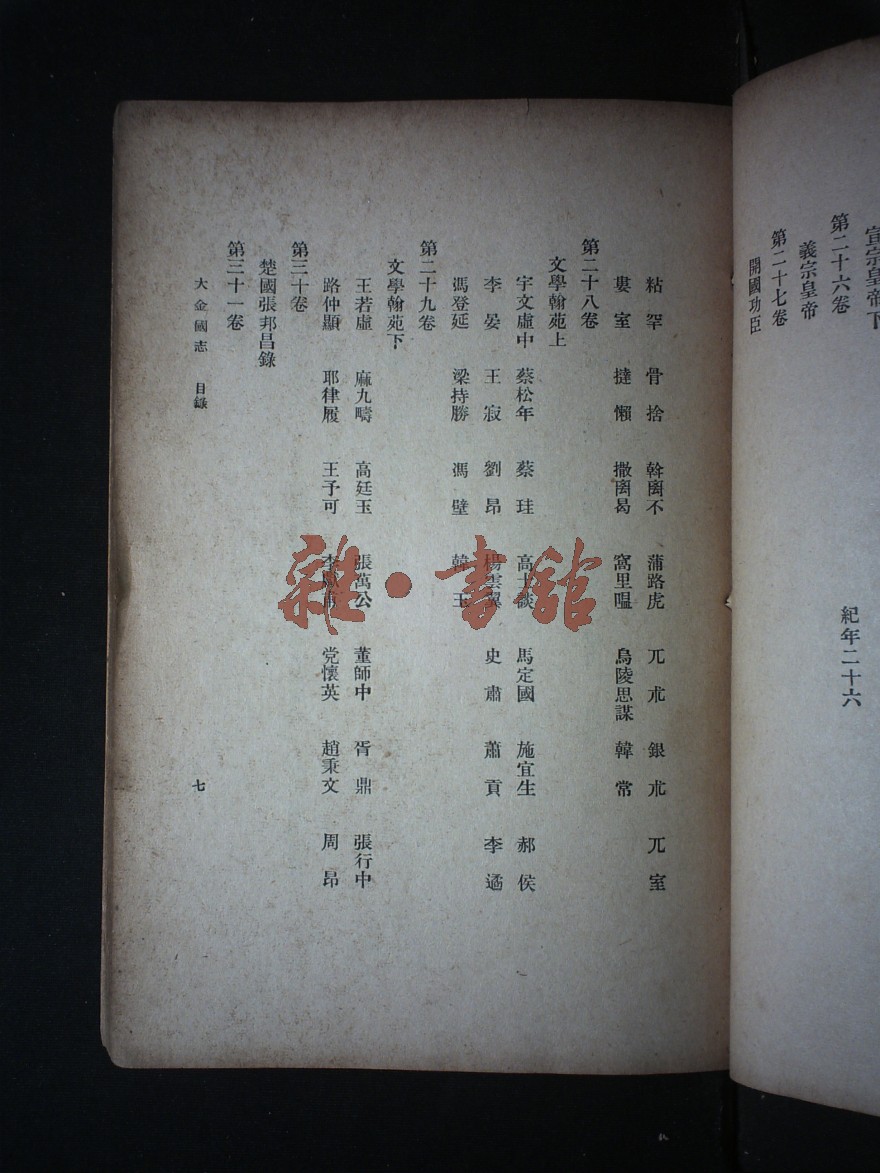 宣宗皇帝下
紀年二十六
第二十六卷
義宗皇帝
第二十七卷
開國功臣
粘罕 骨捨 斡离不 蒲路虎 兀朮 銀朮 兀室
婁室 撻懶 撒离曷 窩里嗢 烏陵思謀 韓常
第二十八卷
文學翰苑上
宇文虛中 蔡松年 蔡珪 高士談 馬定國 施宜生 郝俟
李晏 王寂 劉昂 楊雲翼 史肅 蕭貢 李遹
馮登延 梁持勝 馮壁 韓玉
第二十九卷
文學翰苑下
王若虛 麻九疇 高廷玉 張萬公 董師中 胥鼎 張行中
路仲顯 耶律履 王予可 李獻甫 党懷英 趙秉文 周昂
第三十卷
楚國張邦昌錄
第三十一卷
大金國志 目錄
七
雜·書館